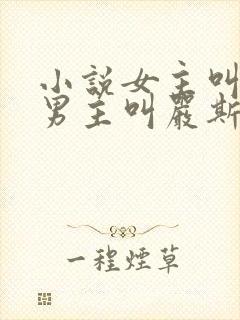 小說女主叫
男主叫嚴斯
一程煙草